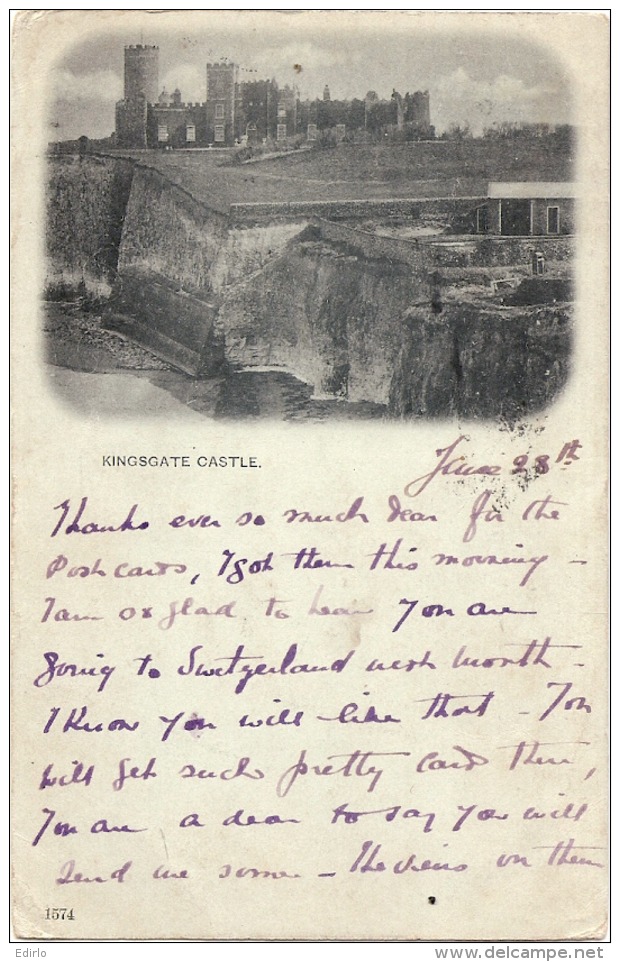 KINGSGATE CASTLE.
June 28th
Thanks ever so much dear for the
Postcards, I got them this morning -
I am so glad to hear you are
going to Switzerland next month -
I know you will like that - You
will get such pretty cards there,
You are a dear to say you will
send me some - The views on them
1574
Edirlo
www.delcampe.net